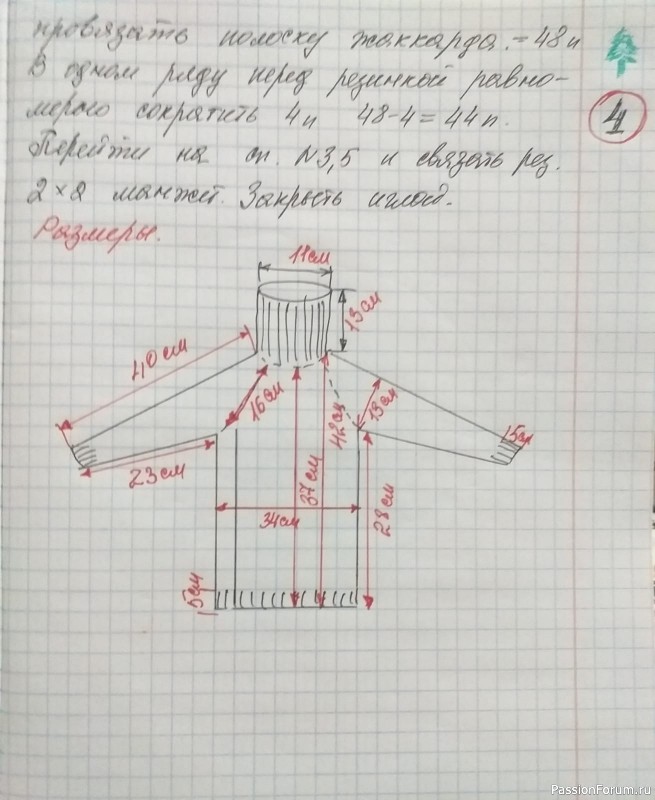 провязать полоску жаккарда. = 48 п
В одном ряду перед резинкой равно-
мерно сократить 4 п 48-4=44 п.
Перейти на сп. N3,5 и связать рез.
2×2 манжет. Закрыть иглой.
4
Размеры.
11см
13см
40см
16см
13см
42см
15см
23см
37см
34см
28см
5см
PassionForum.ru